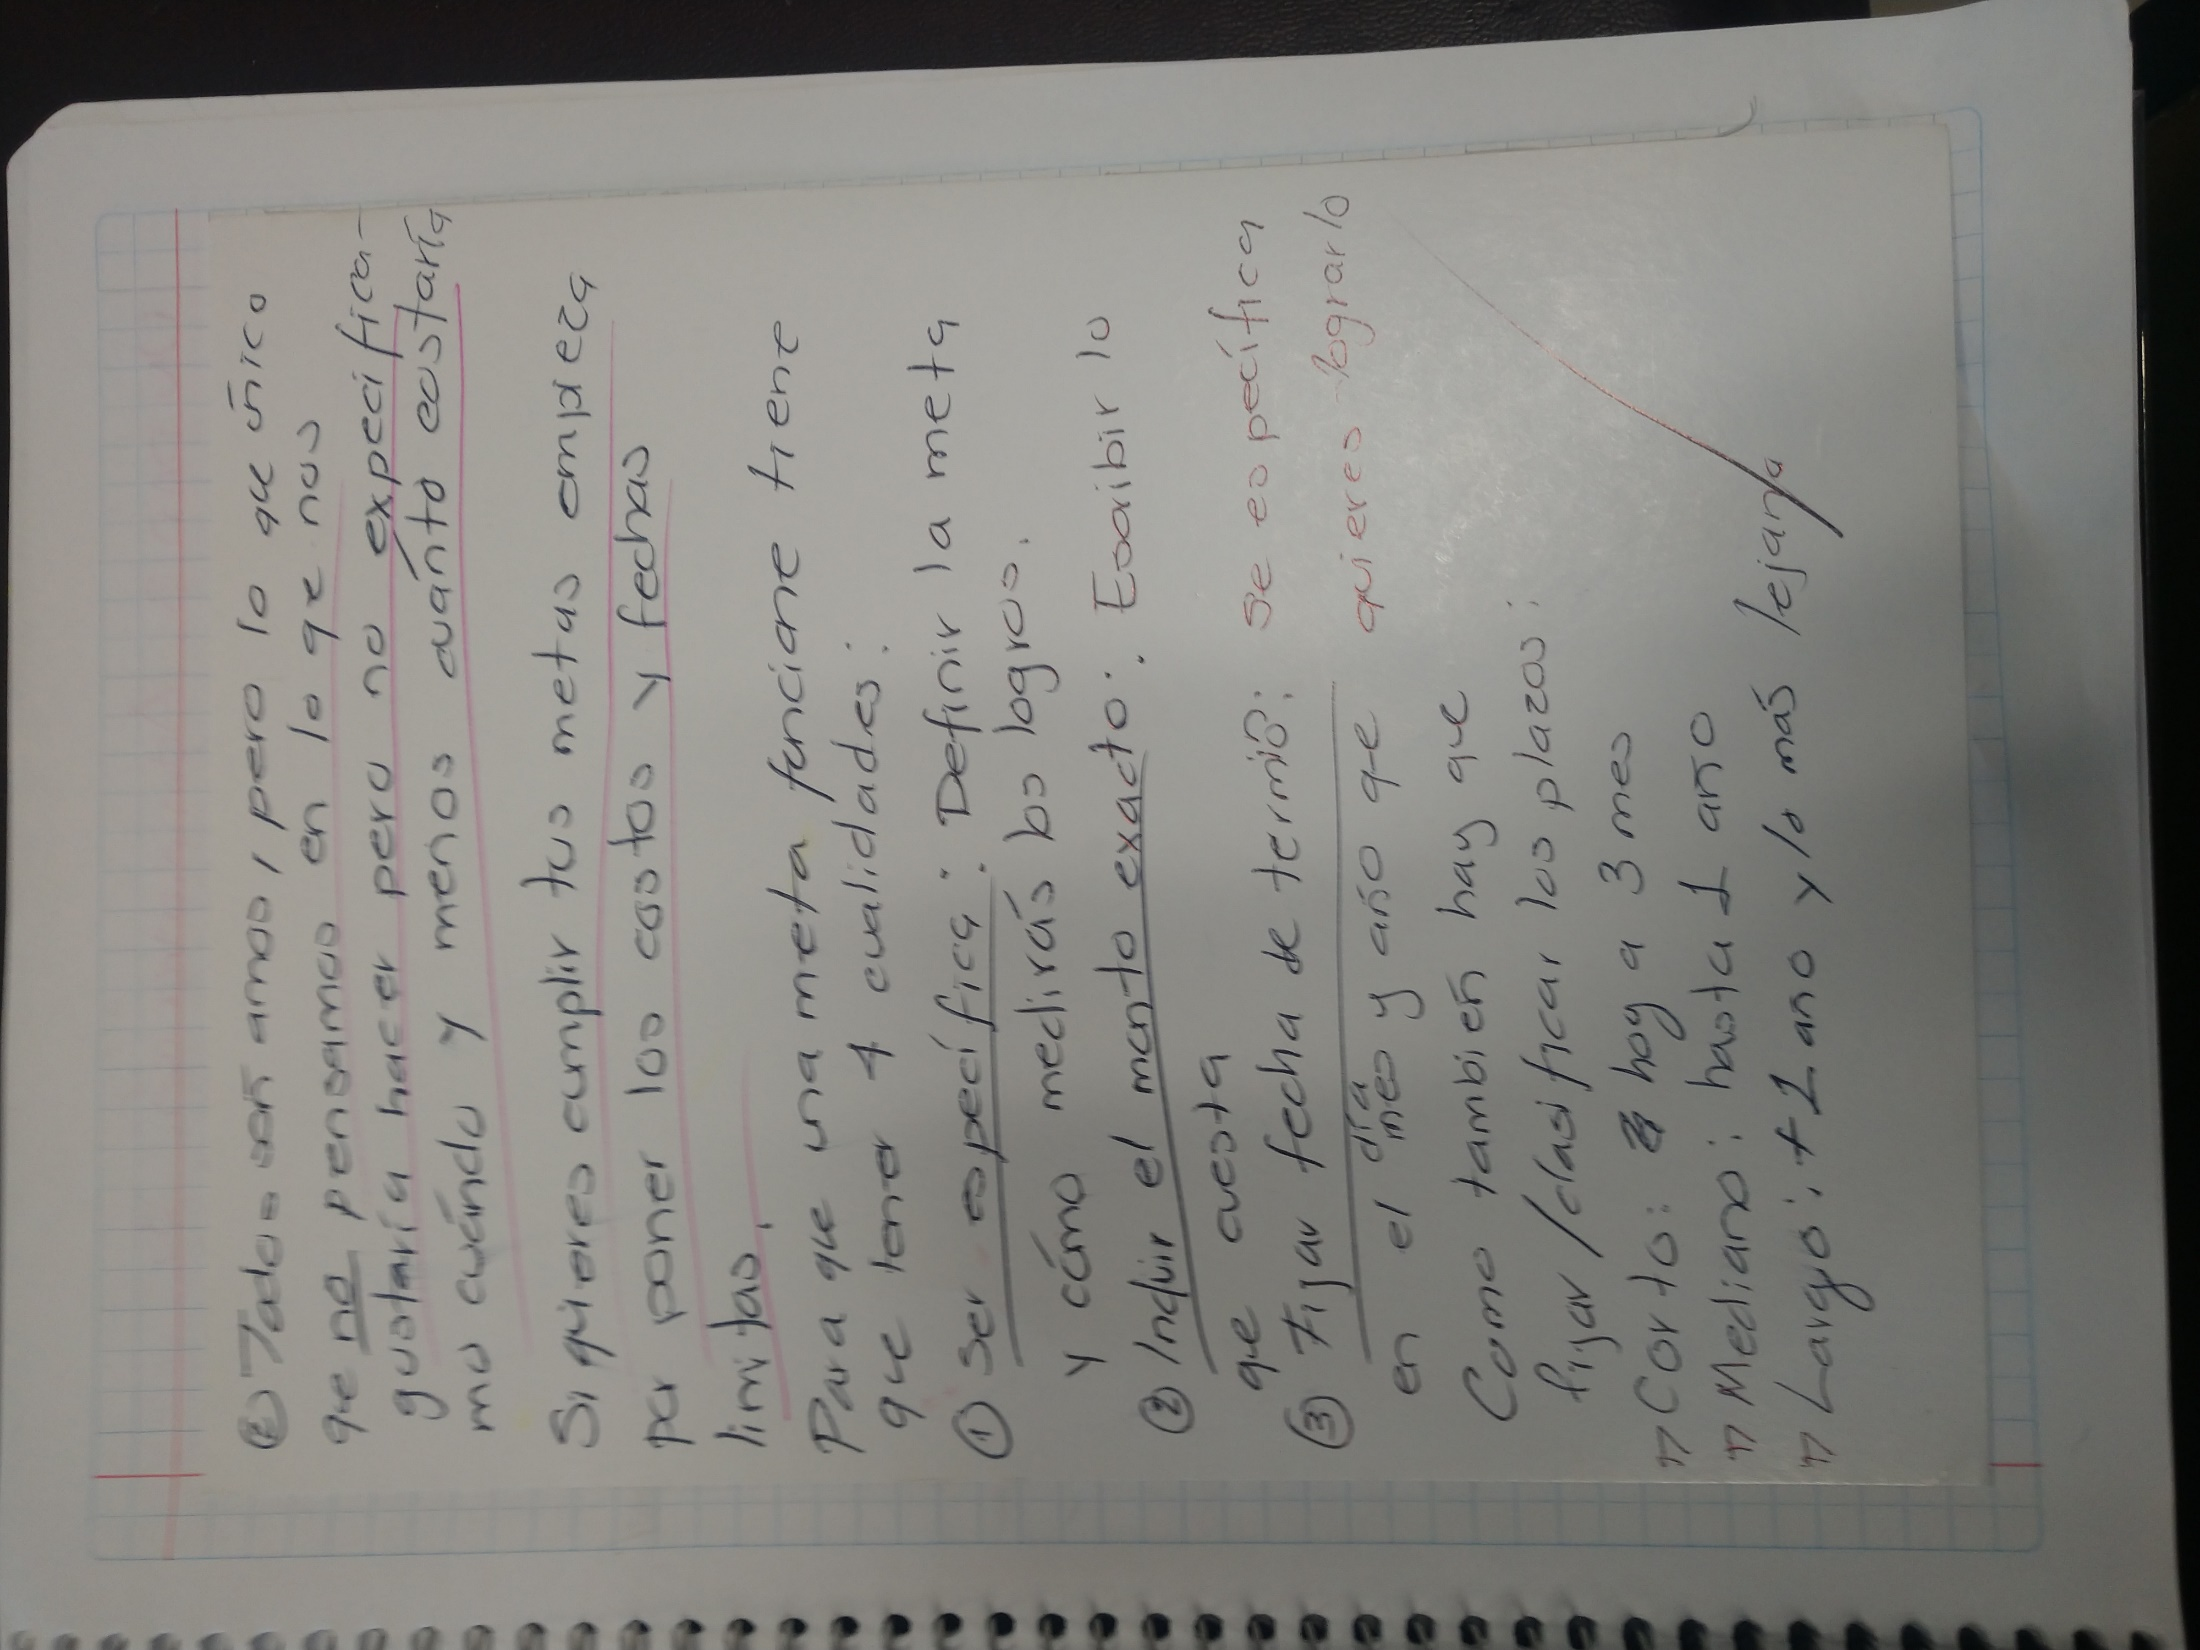 ② Todos soñamos, pero lo que único
que no pensamos en lo que nos
gustaría hacer pero no expecifica-
mo cuándo y menos cuánto costaría
Si quieres cumplir tus metas empieza
por poner los costos y fechas
limitas.
Para que una meta funcione tiene
que tener 4 cualidades:
① Ser específica: Definir la meta
y cómo medirás los logros.
② Incluir el monto exacto: Escribir lo
que cuesta
③ Fijar fecha de termió: Se específica
en el día mes y año que quieres lograrlo
Como también hay que
fijar/clasificar los plazos:
Corto: hoy a 3 mes
Mediano: hasta 1 año
Largo: +1 año y lo más lejana